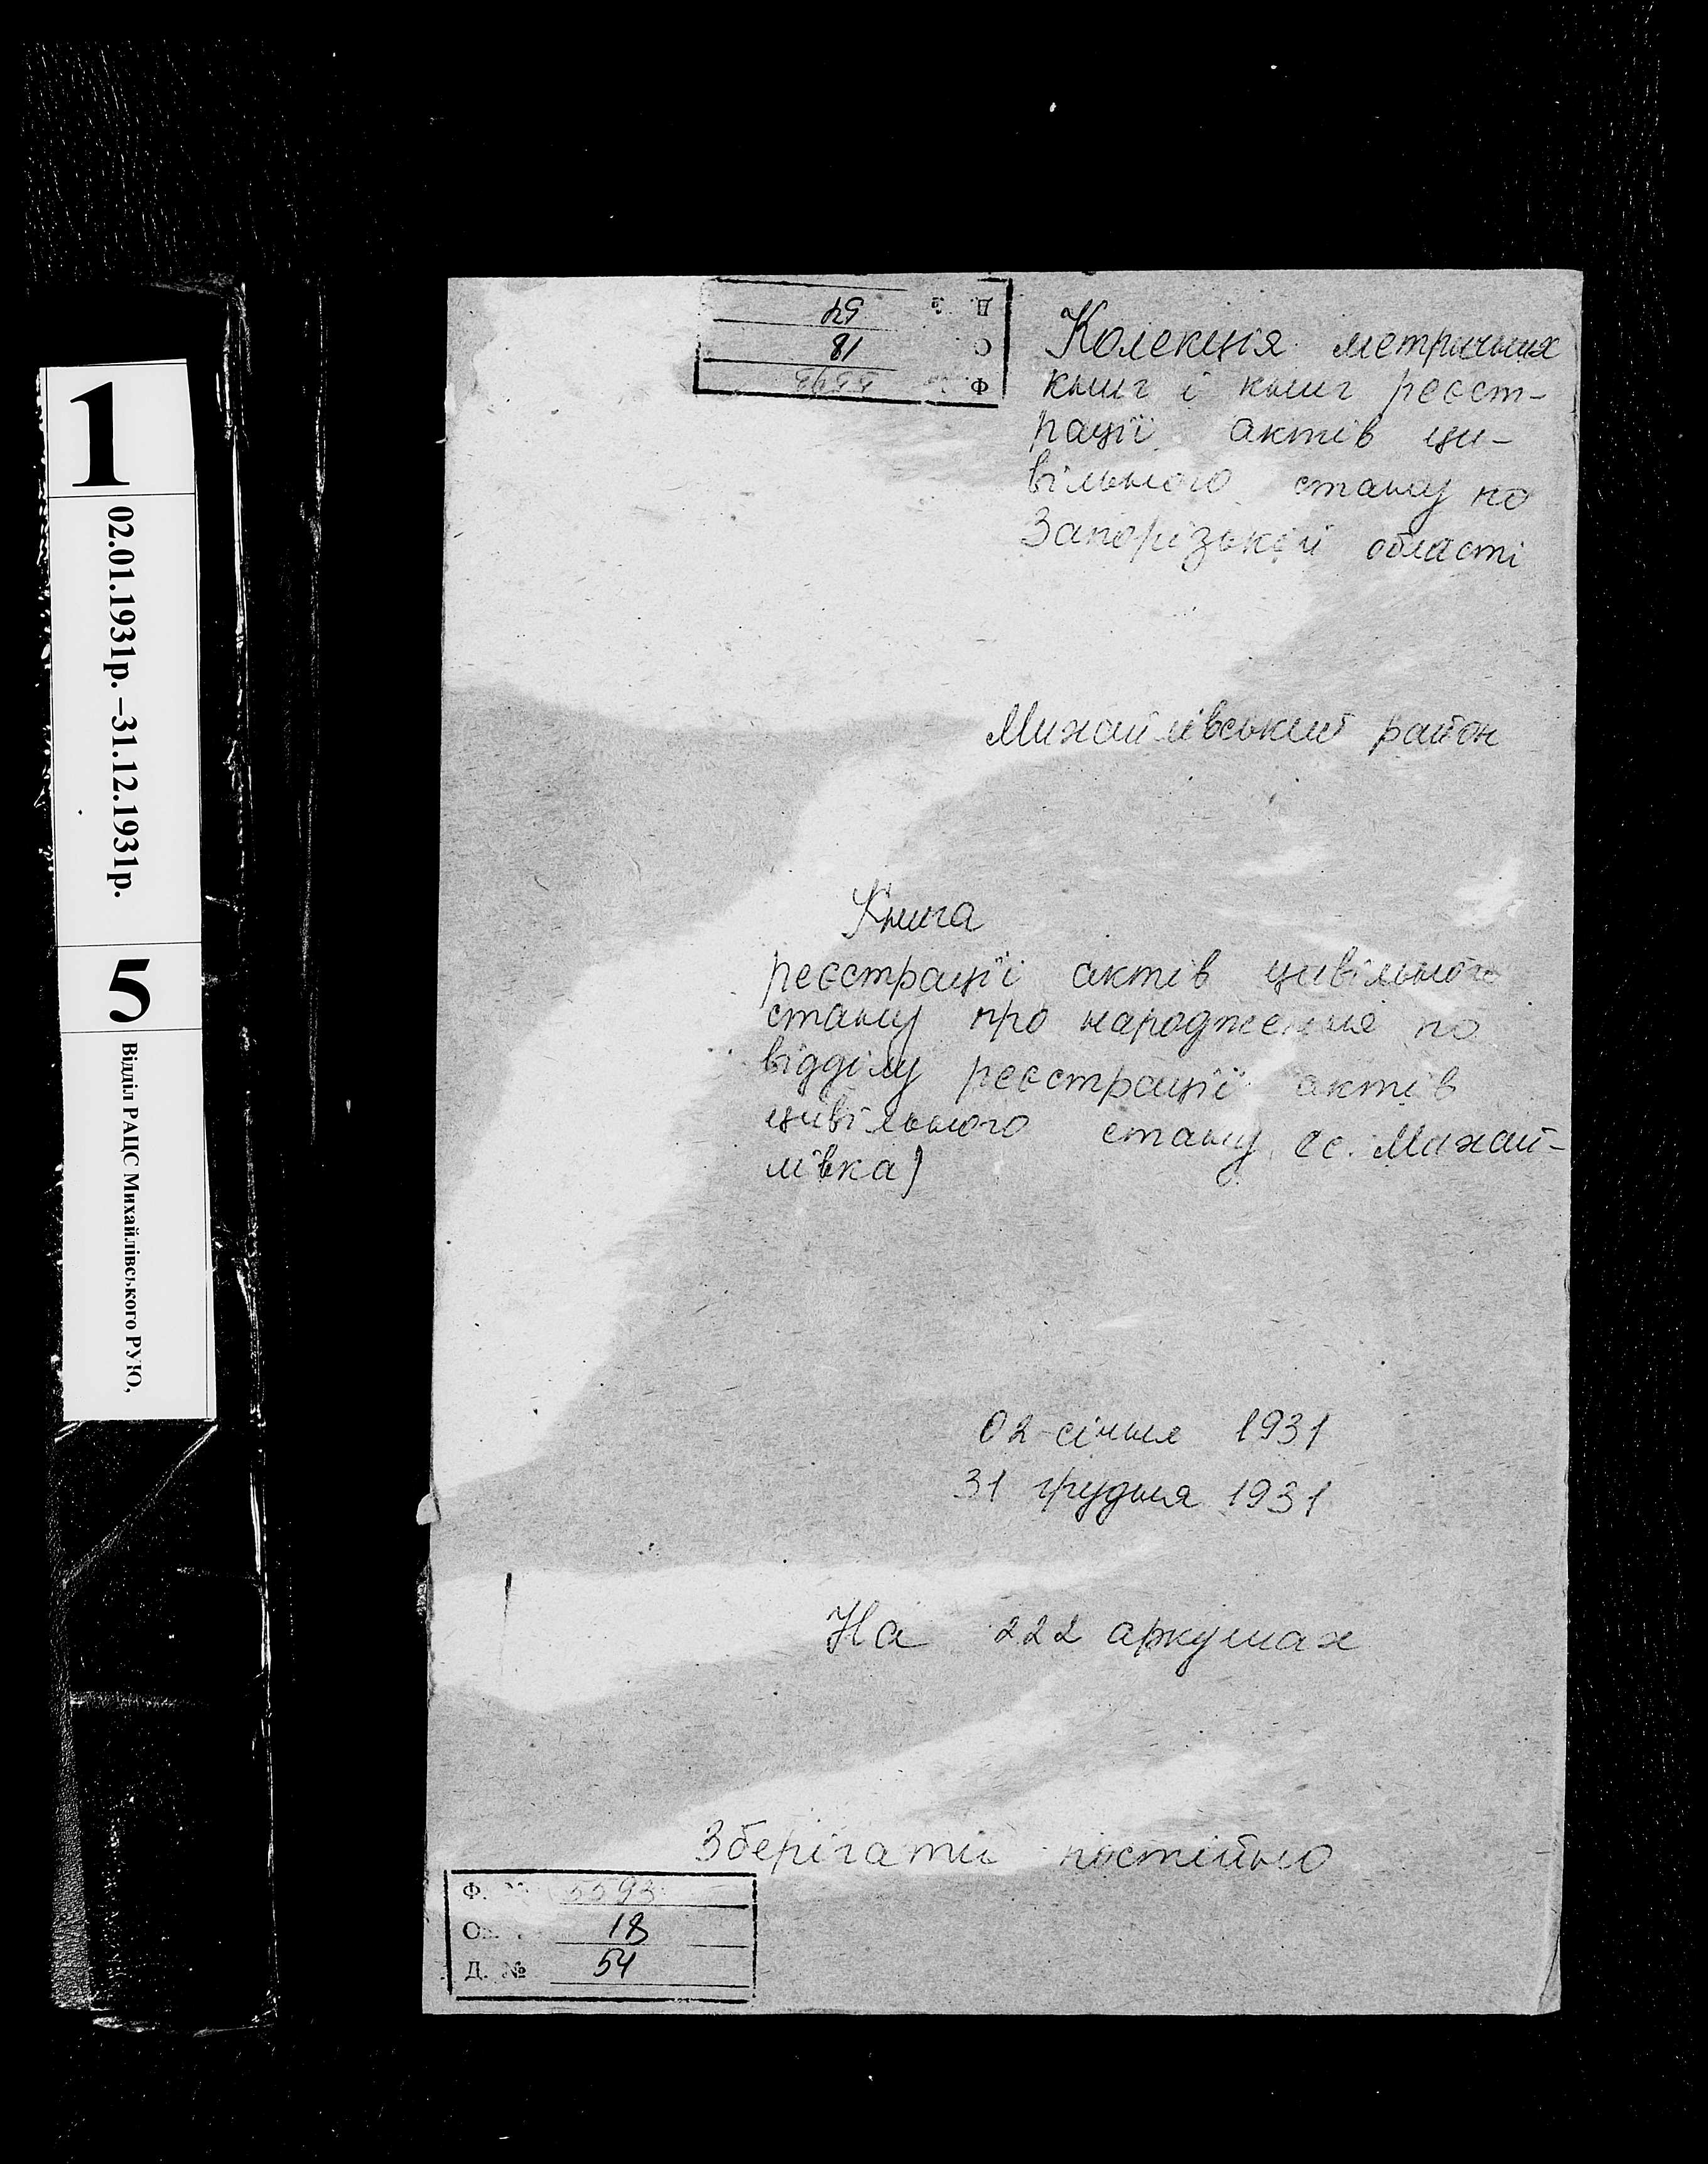 1
02.01.1931р. –31.12.1931р.
5
Відділ РАЦС Михайлівського РУЮ,
Д. № 54
О 18
Ф. 5593
Колекція метричних
книг і книг реєст-
рації актів ци-
вільного стану по
Запорізькій області
Михайлівський район
Книга
реєстрації актів цивільного
стану про народження по
відділу реєстрації актів
цивільного стану (с. Михай-
лівка)
02 січня 1931
31 грудня 1931
На 222 аркушах
Зберігати постійно
Ф. № 5593
О 18
Д. № 54